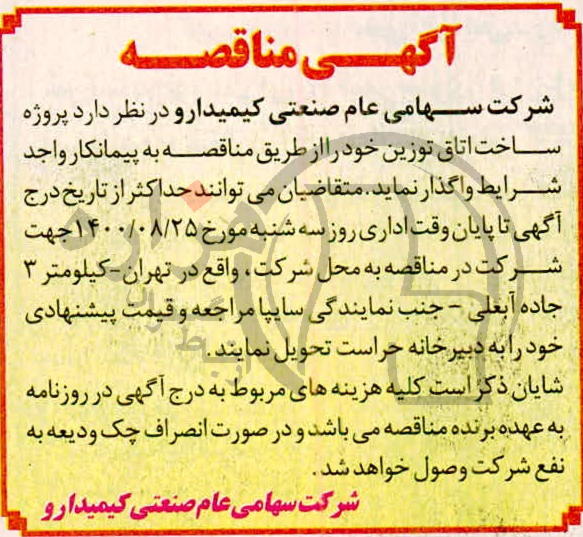 آگهی مناقصه
شرکت سهامی عام صنعتی کیمیدارو در نظر دارد پروژه
ساخت اتاق توزین خود را از طریق مناقصه به پیمانکار واجد
شرایط واگذار نماید. متقاضیان می توانند حداکثر از تاریخ درج
آگهی تا پایان وقت اداری روز سه شنبه مورخ ۱۴۰۰/۰۸/۲۵ جهت
شرکت در مناقصه به محل شرکت، واقع در تهران-کیلومتر ۳
جاده آبعلی - جنب نمایندگی سایپا مراجعه و قیمت پیشنهادی
خود را به دبیرخانه حراست تحویل نمایند.
شایان ذکر است کلیه هزینه های مربوط به درج آگهی در روزنامه
به عهده برنده مناقصه می باشد و در صورت انصراف چک ودیعه به
نفع شرکت وصول خواهد شد.
شرکت سهامی عام صنعتی کیمیدارو